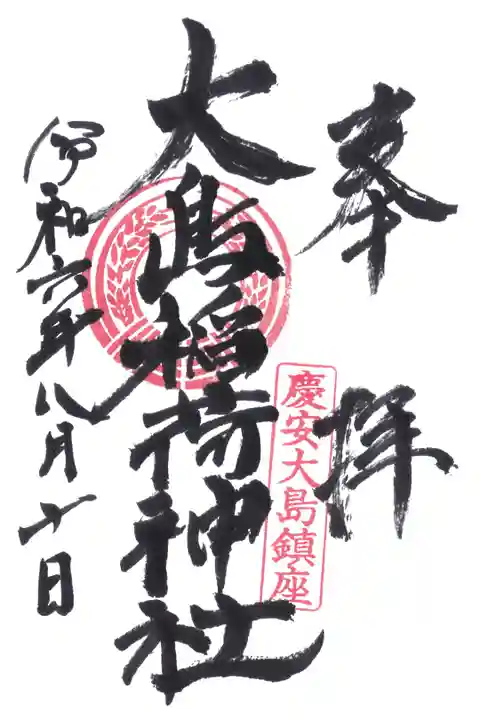 奉拝
慶安大島鎮座
大島稲荷神社
令和六年八月十一日